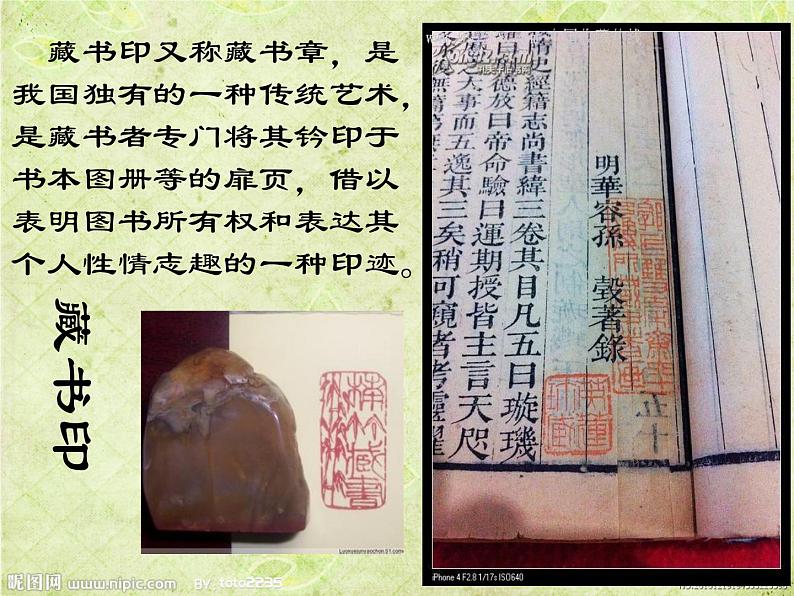 藏书印又称藏书章，是
我国独有的一种传统艺术，
是藏书者专门将其钤印于
书本图册等的扉页，借以
表明图书所有权和表达其
个人性情志趣的一种印迹。
藏书印
藏書
隋史經籍志尚書緯三卷其目凡五曰璇璣
德放曰帝命驗曰運期授皆主言天咫
之大事而五逸其三矣稍可窺者考靈曜
明華容孫 瑴著錄
五十
iPhone 4 F2.8 1/17s ISO640
昵图网 www.nipic.com BY: toto2235